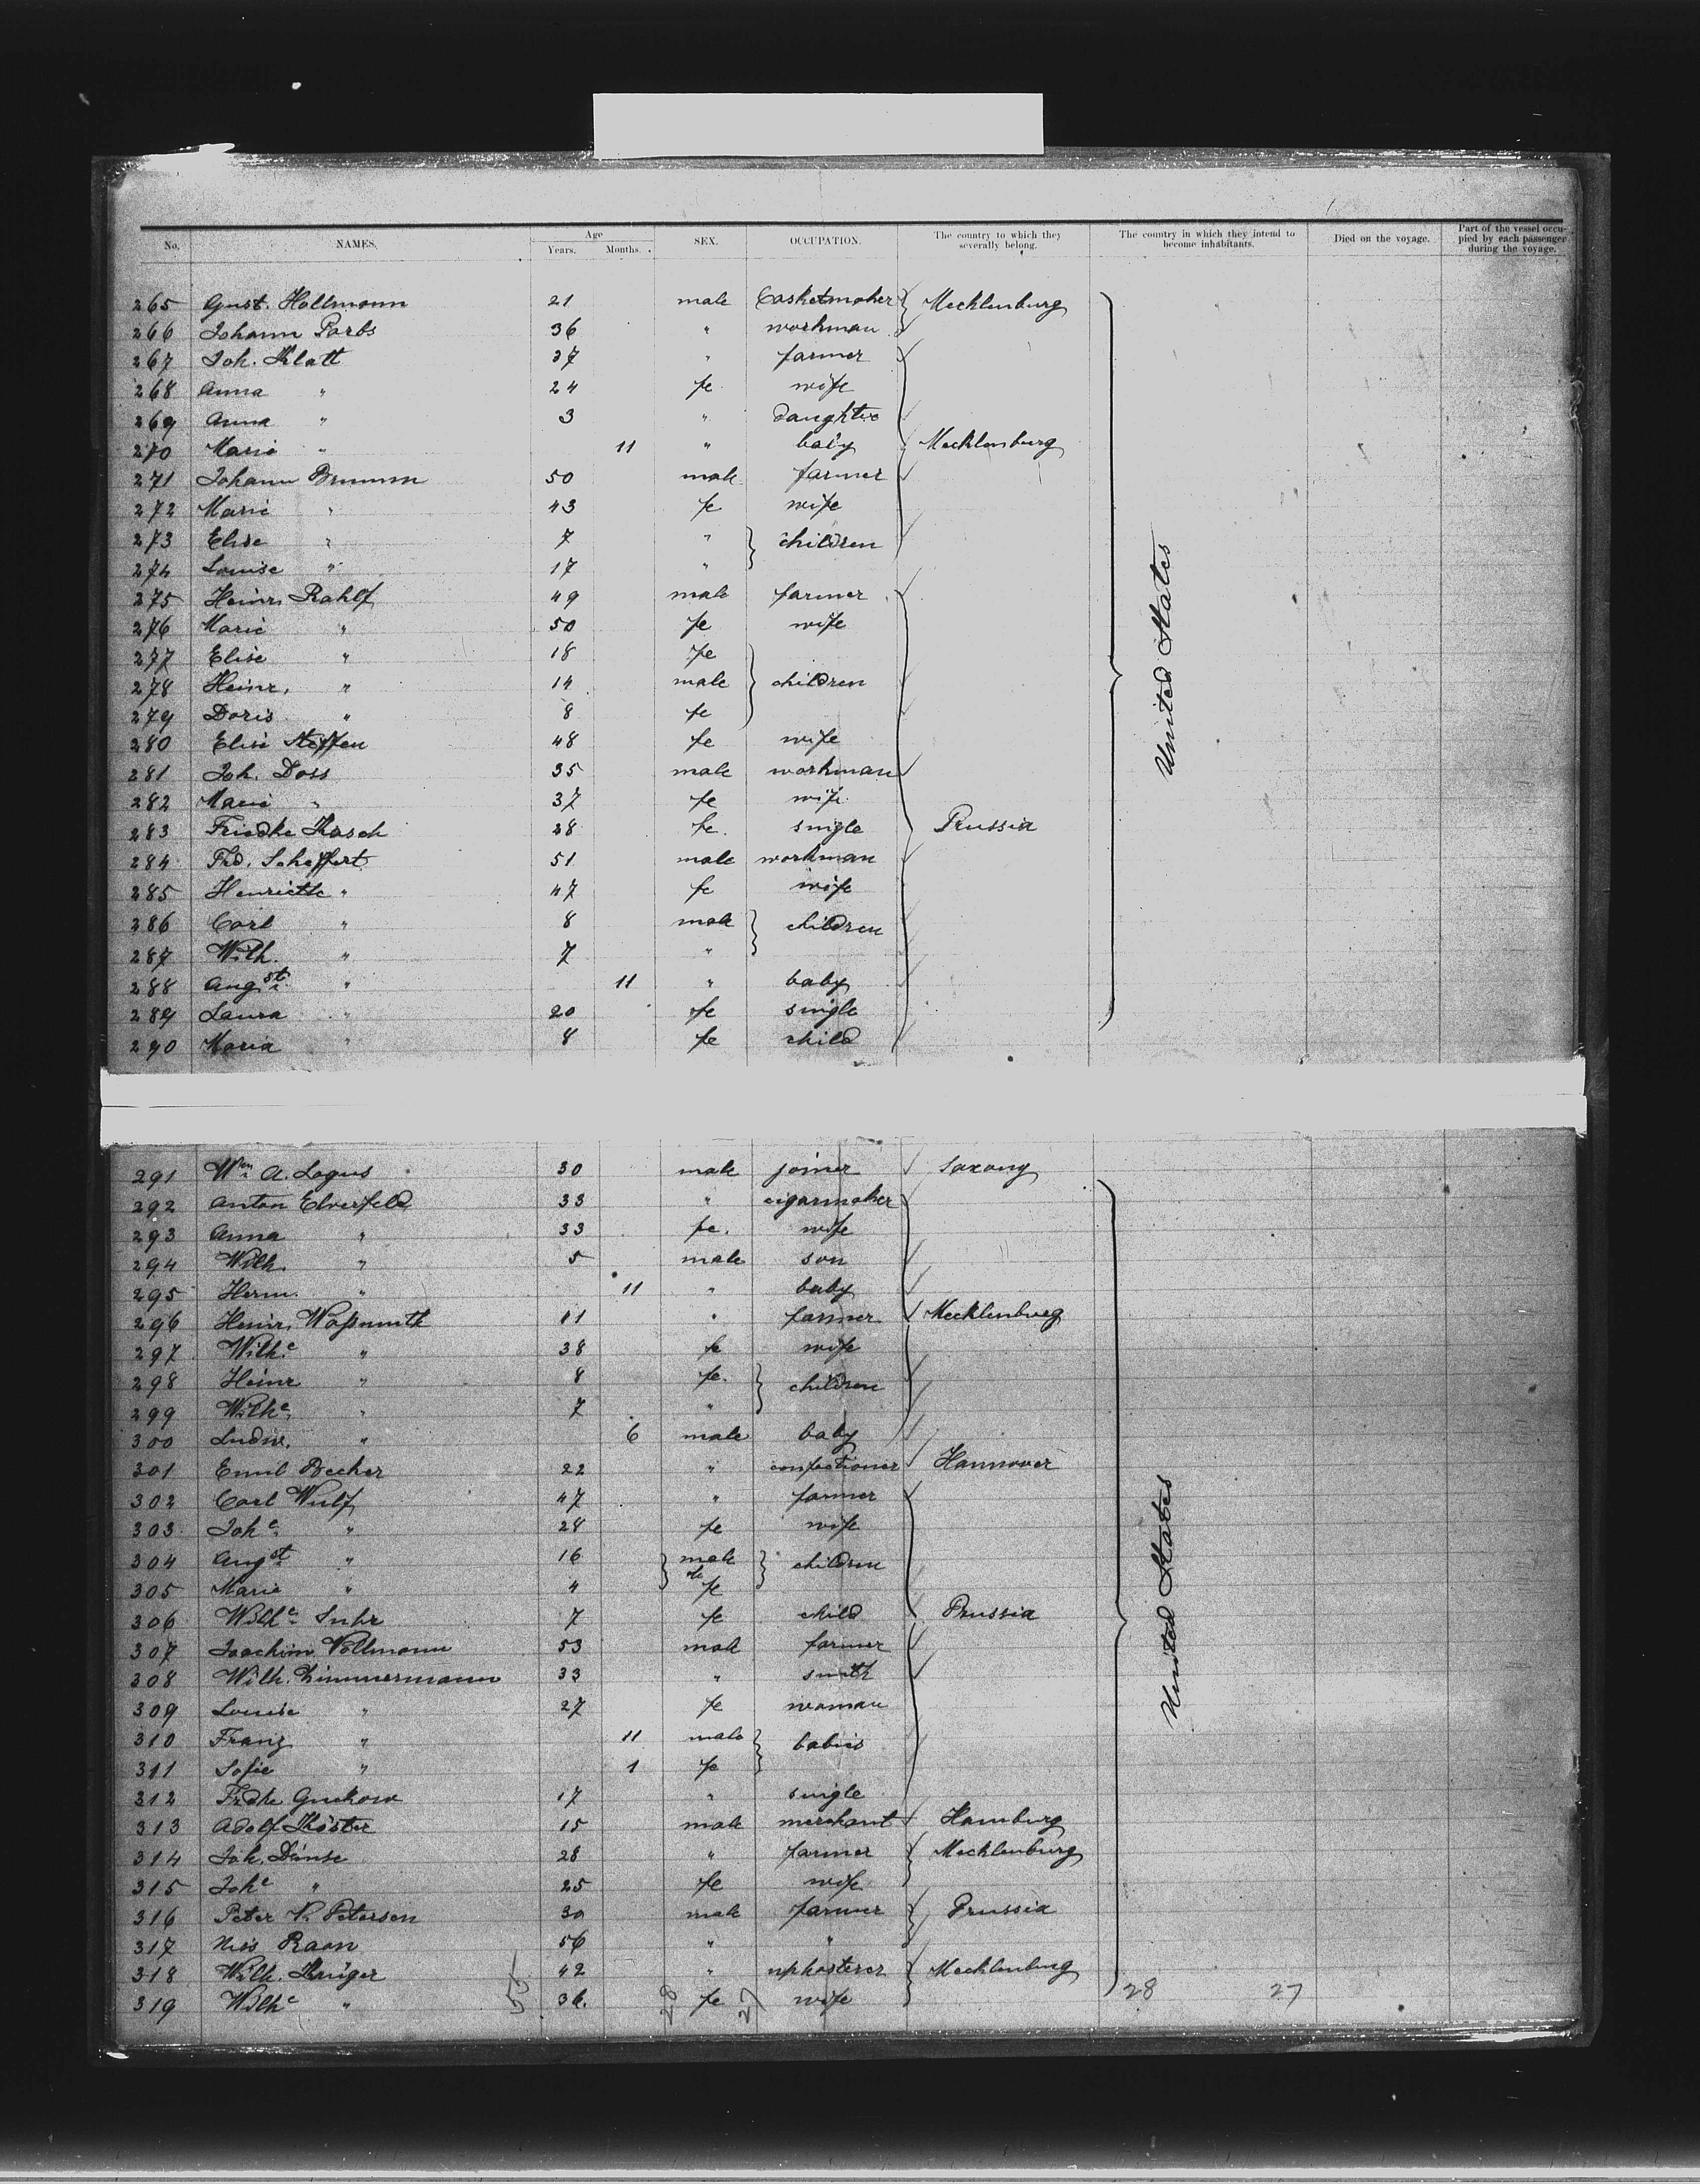 No. NAMES. Age Years. Months. SEX. OCCUPATION. The country to which they severally belong. The country in which they intend to become inhabitants. Died on the voyage. Part of the vessel occupied by each passenger during the voyage.
265 Gust. Hallmann 21 male Casketmaker Mecklenburg
266 Johann Parbs 36 " workman
267 Joh. Klatt 37 " farmer
268 Anna " 24 fe wife
269 Anna " 3 " daughter
270 Marie " 11 " baby Mecklenburg
271 Johann Brumm 50 male farmer
272 Marie " 43 fe wife
273 Elise " 7 " children
274 Louise " 17 "
275 Heinr. Rahlf 49 male farmer
276 Marie " 50 fe wife
277 Elise " 18 fe
278 Heinr. " 14 male children
279 Doris " 8 fe
280 Elise Steffen 48 fe wife
281 Joh. Doss 35 male workman
282 Marie " 37 fe wife
283 Friedke Kasch 28 fe. single Prussia
284 Frd. Scheffert 51 male workman
285 Henriette " 47 fe wife
286 Carl " 8 male children
287 Wilh. " 7 "
288 Augst. " 11 " baby
289 Laura " 20 fe single
290 Maria " 8 fe child
United States
291 Wm A. Logus 30 male joiner Saxony
292 Anton Elverfeld 33 " cigarmaker
293 Anna " 33 fe. wife
294 Wilh. " 5 male son
295 Herm. " 11 " baby
296 Heinr. Waßmuth 41 " farmer Mecklenburg
297 Wilhe " 38 fe wife
298 Heinr " 8 fe. children
299 Wilhe. " 7 "
300 Ludw. " 6 male baby
301 Emil Becker 22 " confectioner Hannover
302 Carl Wulf 47 " farmer
303 Johe. " 28 fe wife
304 Augst " 16 male children
305 Marie " 4 fe
306 Wilhe Suhr 7 fe child Prussia
307 Joachim Vollmann 53 male farmer
308 Wilh. Zimmermann 33 " smith
309 Louise " 27 fe woman
310 Franz " 11 male babies
311 Sofie " 1 fe
312 Frdke Guckow 17 " single
313 Adolf Köster 15 male merchant Hamburg
314 Joh. Dänse 28 " farmer Mecklenburg
315 Johe " 25 fe wife
316 Peter N. Petersen 30 male farmer Prussia
317 Nis Raon 56 " "
318 Wilh. Krüger 42 " uphosterer Mecklenburg
319 Wilhe " 36. fe wife
United States
55 28 27 28 27